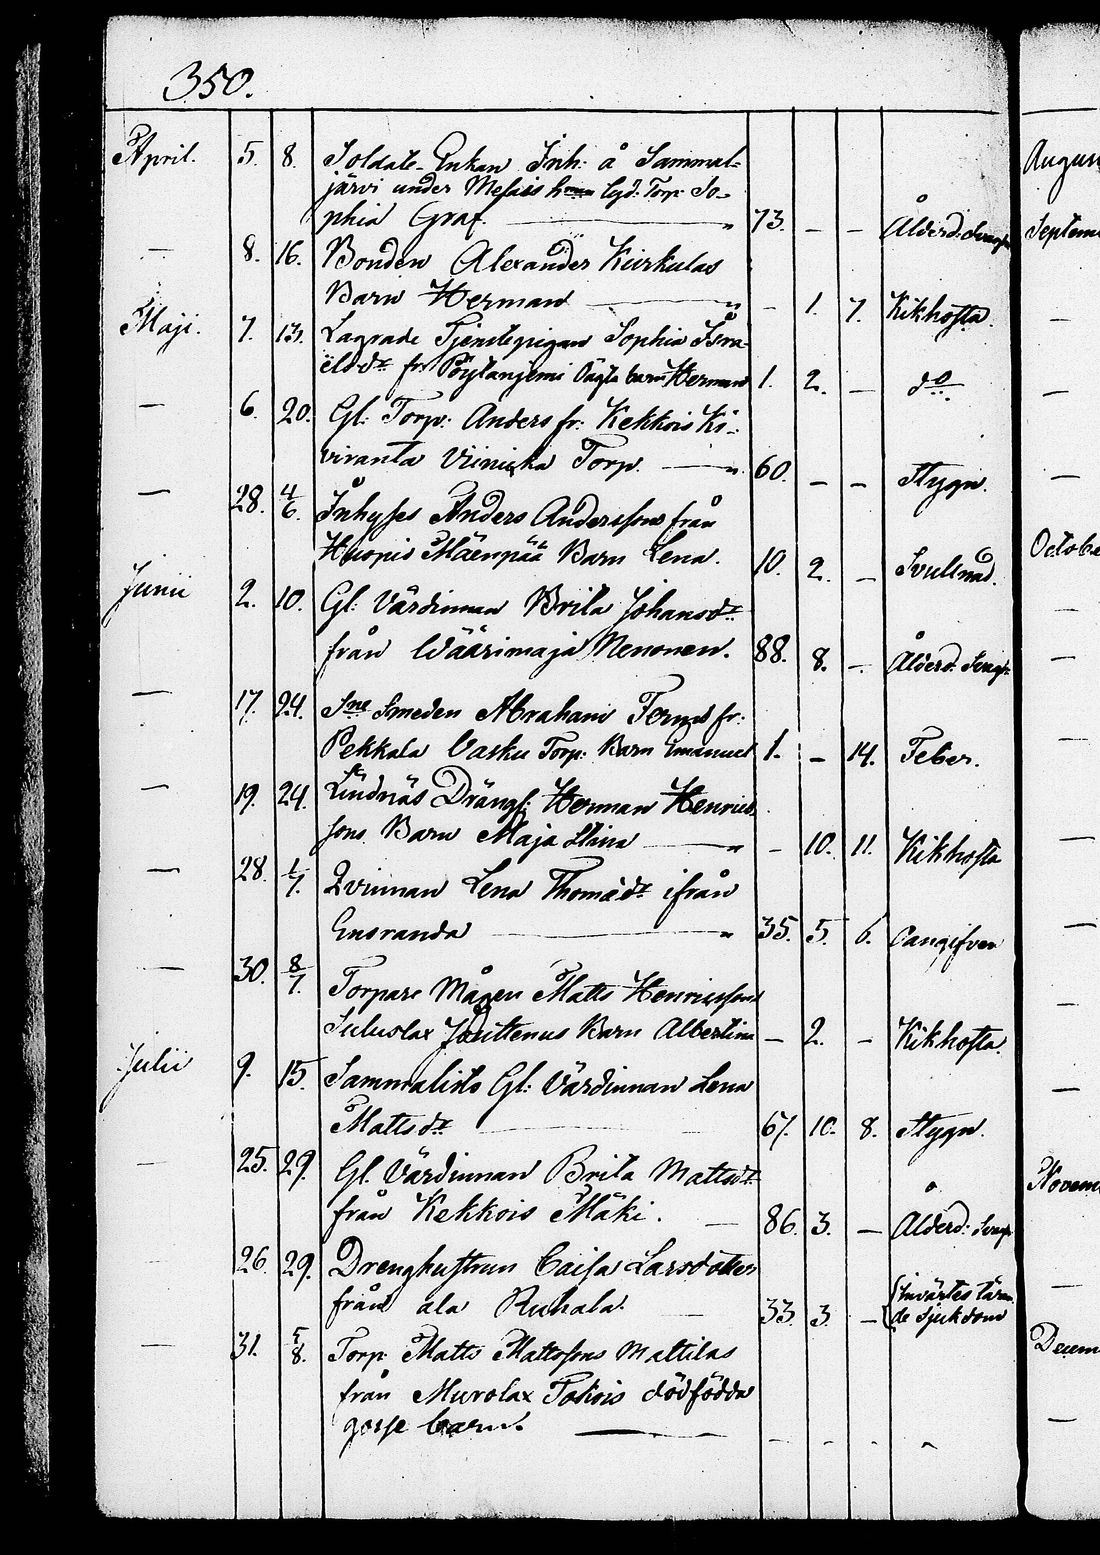 350.
April. 5. 8. Soldate-Enkan Inh: å Sammal-
järvi under Messis Torp: So-
phia Graf. " 73. - - Ålderd:
— 8. 16. Bonden Alexander Kurkulas
Barn Herman " - 1. 7. Kikhosta.
Maji. 7. 13. Lagrade Tjenstepigan Sophia Isra-
elsdr fr Pöytäniemi Oägta barn Herman 1. 2. - do
— 6. 20. Gl: Torp: Anders fr: Kekkois Ki-
viranta Viinicka Torp. " 60. - - Stygn.
— 28. 4/6. Inhyses Anders Anderssons från
Huopis Mäenpää Barn Lena. 10. 2. - Svulnad.
Junii 2. 10. Gl: Värdinnan Brita Johansdr
från Wäärimaja Nenonen. 88. 8. - Ålderd:
— 17. 24. Sne Smeden Abraham fr:
Pekkala Vasku Torp: Barn Emanuel 1. - 14. Feber.
— 19. 24. Lindnäs Drängs: Herman Henrics
sons Barn Maja Stina " - 10. 11. Kikhosta
— 28. 1/7. Qvinnan Lena Thomædr ifrån
Ensranda " 35. 5. 6. Oangifven
— 30. 8/7. Torpare Mågen Matts Henricssons
Suluolax Barn Albertina - 2. - Kikhosta.
Julii 9. 15. Sammalisto Gl: Värdinnan Lena
Mattsdr 67. 10. 8. Stygn.
— 25. 29. Gl. Värdinnan Brita Mattsdr
från Kekkois Mäki. 86. 3. - Ålderd:
— 26. 29. Drenghustrun Caisa Larsdotter
från ala Ruhala. 33. 3. - Invärtes täran
de Sjukdom
— 31. 5/8. Torp: Matts Mattssons Mattilas
från Murolax Tokois dödfödda
gosse barn. - - - -
Augus
Septem
Octobe
Novem
Decem